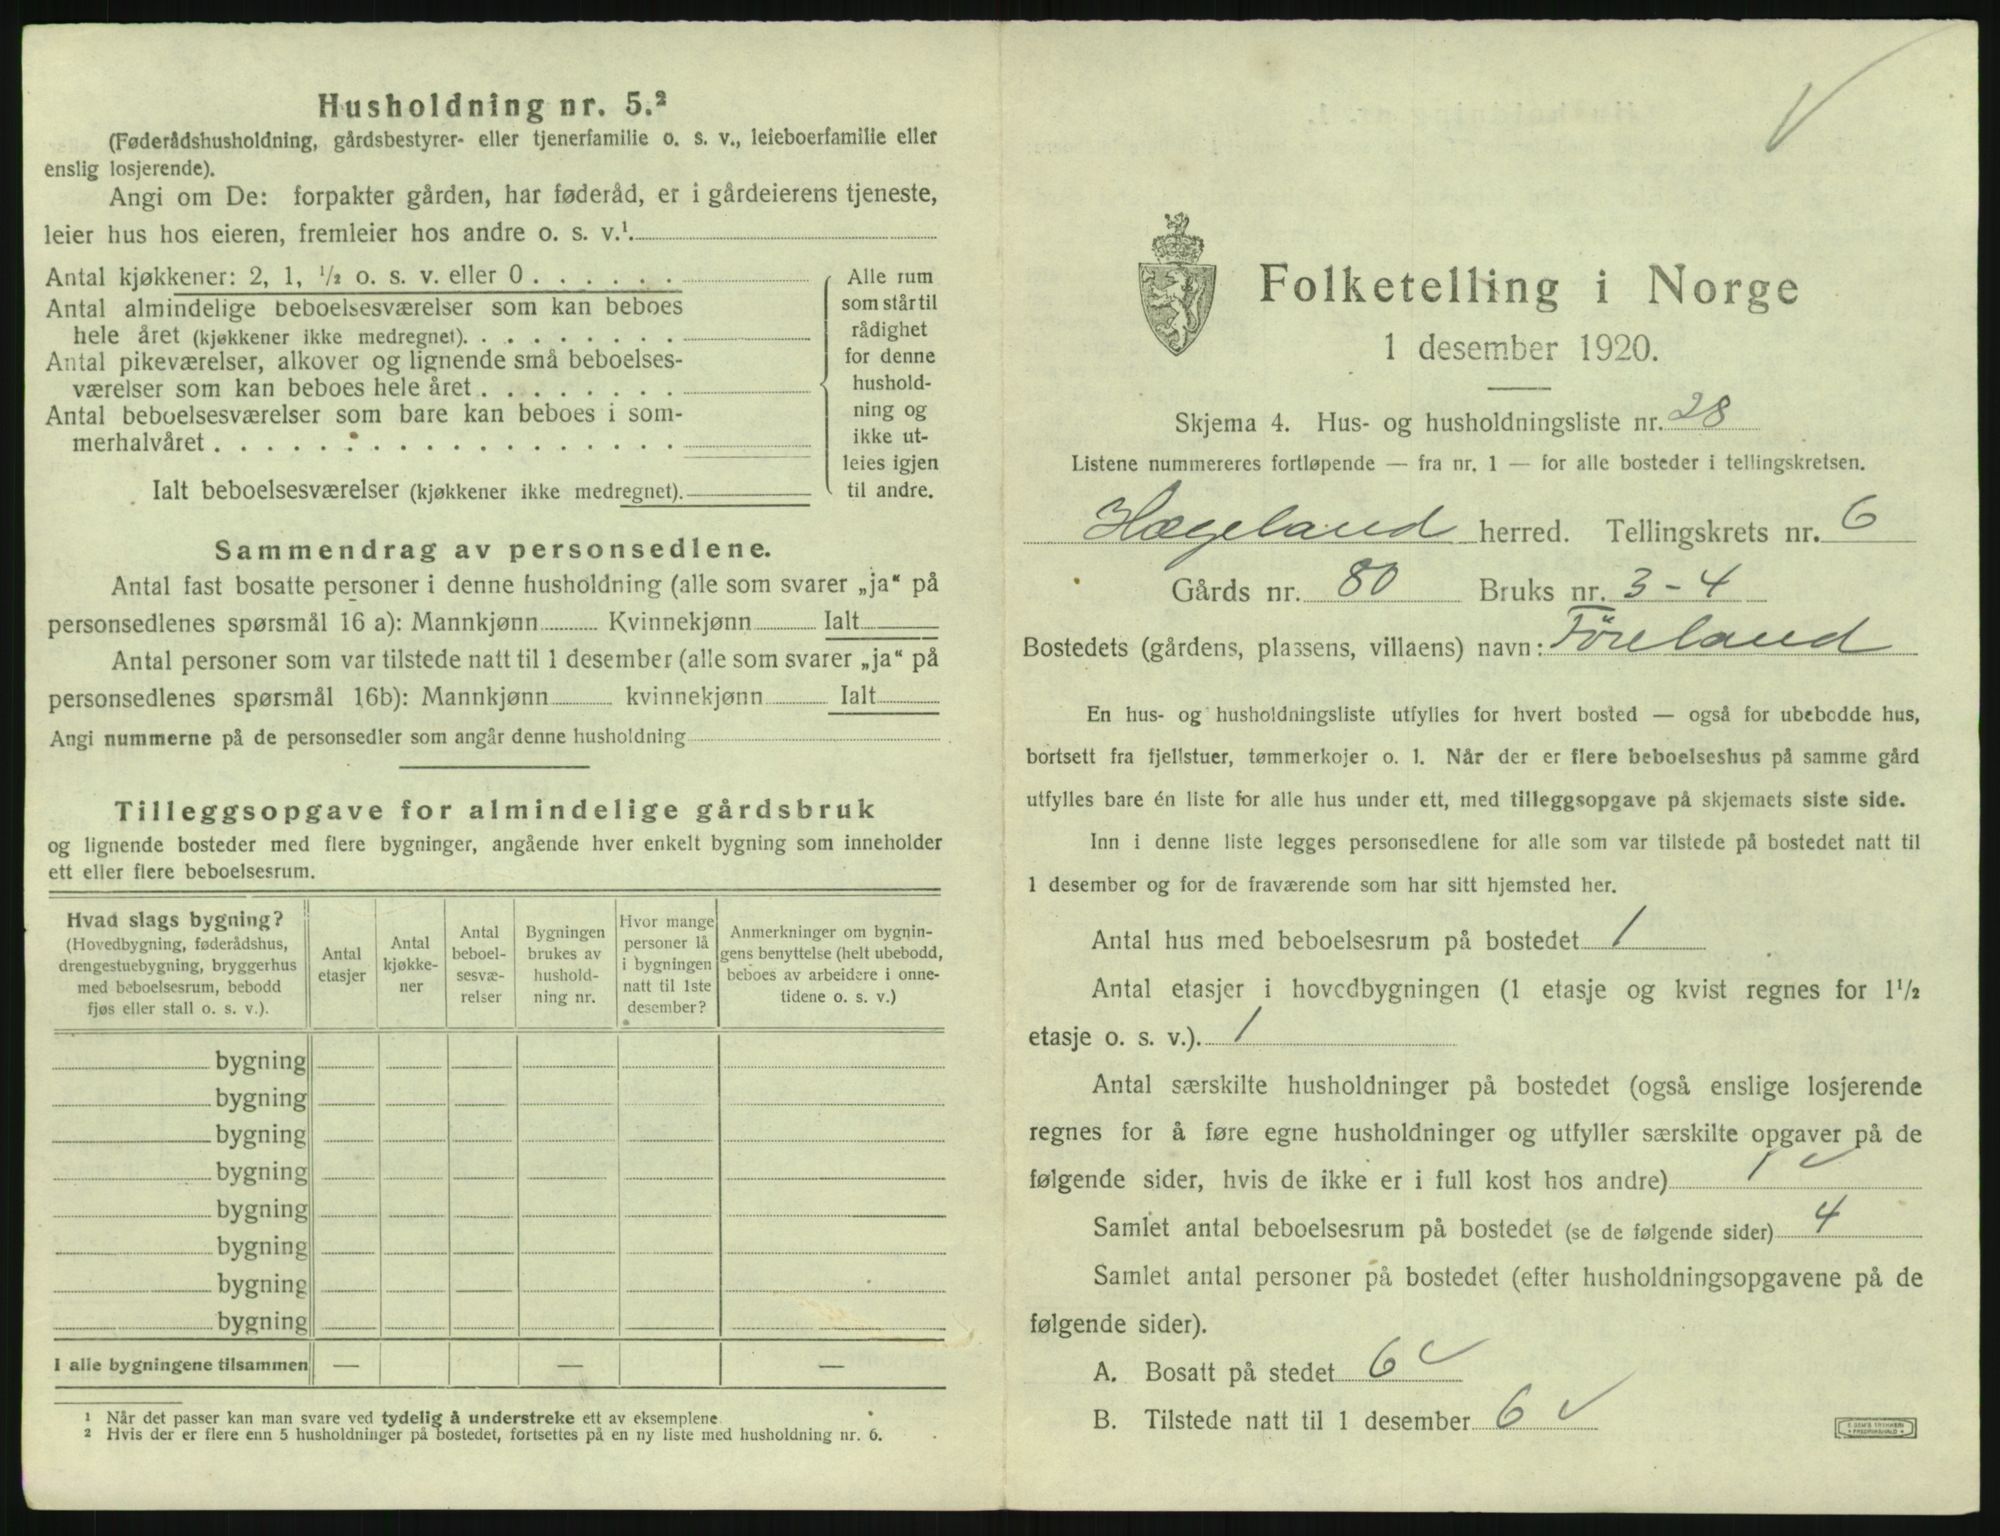 Husholdning nr. 5.²
(Føderådshusholdning, gårdsbestyrer- eller tjenerfamilie o. s. v., leieboerfamilie eller
enslig losjerende).
Angi om De: forpakter gården, har føderåd, er i gårdeierens tjeneste,
leier hus hos eieren, fremleier hos andre o. s. v.¹.
Antal kjøkkener: 2, 1, ½ o. s. v. eller 0 . . . . . .
Antal almindelige beboelsesværelser som kan beboes
hele året (kjøkkener ikke medregnet). . . . . . . . .
Antal pikeværelser, alkover og lignende små beboelses-
værelser som kan beboes hele året . . . . . . . .
Antal beboelsesværelser som bare kan beboes i som-
merhalvåret . . . . . . . . . . . . . . . . . .
Ialt beboelsesværelser (kjøkkener ikke medregnet).
Alle rum
som står til
rådighet
for denne
hushold-
ning og
ikke ut-
leies igjen
til andre.
Sammendrag av personsedlene.
Antal fast bosatte personer i denne husholdning (alle som svarer „ja“ på
personsedlenes spørsmål 16 a): Mannkjønn Kvinnekjønn Ialt
Antal personer som var tilstede natt til 1 desember (alle som svarer „ja“ på
personsedlenes spørsmål 16b): Mannkjønn kvinnekjønn Ialt
Angi nummerne på de personsedler som angår denne husholdning
Tilleggsopgave for almindelige gårdsbruk
og lignende bosteder med flere bygninger, angående hver enkelt bygning som inneholder
ett eller flere beboelsesrum.
Hvad slags bygning?
(Hovedbygning, føderådshus,
drengestuebygning, bryggerhus
med beboelsesrum, bebodd
fjøs eller stall o. s. v.).
Antal
etasjer
Antal
kjøkke-
ner
Antal
beboel-
sesvæ-
relser
Bygningen
brukes av
hushold-
ning nr.
Hvor mange
personer lå
i bygningen
natt til 1ste
desember?
Anmerkninger om bygnin-
gens benyttelse (helt ubebodd,
beboes av arbeidere i onne-
tidene o. s. v.)
bygning
bygning
bygning
bygning
bygning
bygning
bygning
bygning
I alle bygningene tilsammen — — —
¹ Når det passer kan man svare ved tydelig å understreke ett av eksemplene.
² Hvis der er flere enn 5 husholdninger på bostedet, fortsettes på en ny liste med husholdning nr. 6.
Folketelling i Norge
1 desember 1920.
Skjema 4. Hus- og husholdningsliste nr. 28
Listene nummereres fortløpende — fra nr. 1 — for alle bosteder i tellingskretsen.
Hægeland herred. Tellingskrets nr. 6
Gårds nr. 80 Bruks nr. 3-4
Bostedets (gårdens, plassens, villaens) navn: Föreland
En hus- og husholdningsliste utfylles for hvert bosted — også for ubebodde hus,
bortsett fra fjellstuer, tømmerkojer o. l. Når der er flere beboelseshus på samme gård
utfylles bare én liste for alle hus under ett, med tilleggsopgave på skjemaets siste side.
Inn i denne liste legges personsedlene for alle som var tilstede på bostedet natt til
1 desember og for de fraværende som har sitt hjemsted her.
Antal hus med beboelsesrum på bostedet 1
Antal etasjer i hovedbygningen (1 etasje og kvist regnes for 1½
etasje o. s. v.). 1
Antal særskilte husholdninger på bostedet (også enslige losjerende
regnes for å føre egne husholdninger og utfyller særskilte opgaver på de
følgende sider, hvis de ikke er i full kost hos andre) 1 ✓
Samlet antal beboelsesrum på bostedet (se de følgende sider) 4
Samlet antal personer på bostedet (efter husholdningsopgavene på de
følgende sider).
A. Bosatt på stedet 6 ✓
B. Tilstede natt til 1 desember 6 ✓